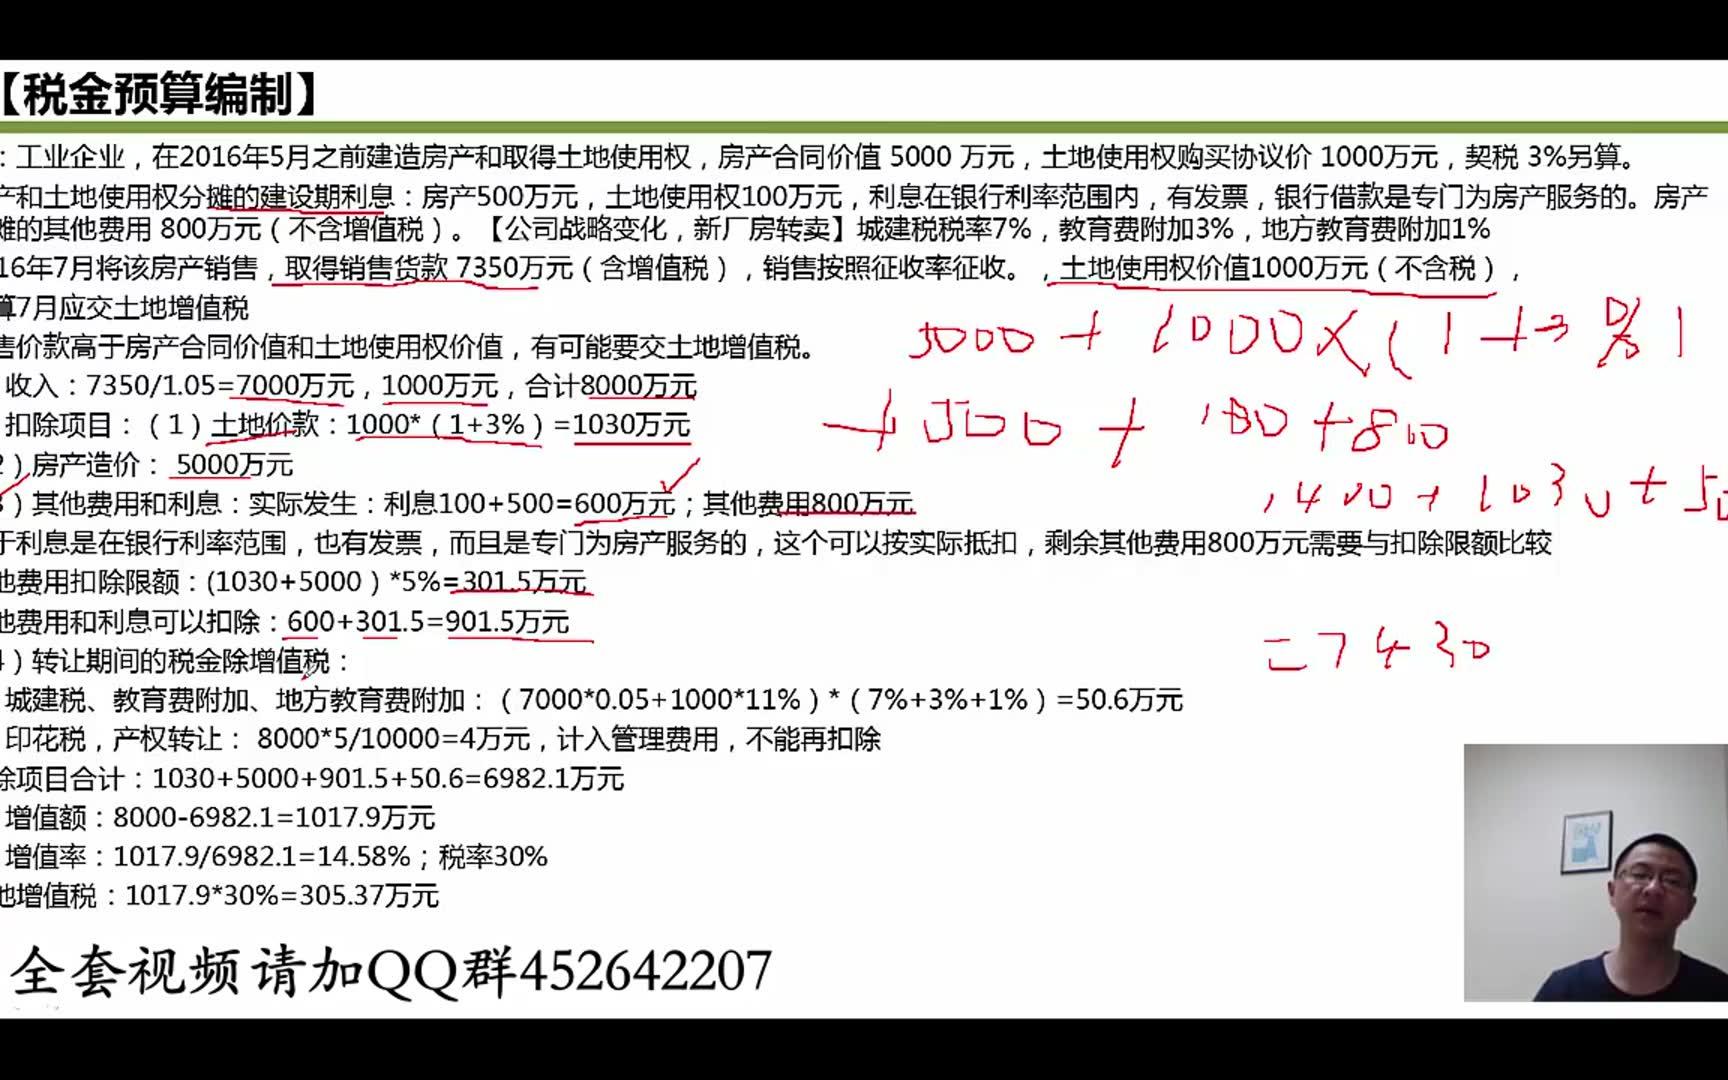 【税金预算编制】
：工业企业，在2016年5月之前建造房产和取得土地使用权，房产合同价值 5000 万元，土地使用权购买协议价 1000万元，契税 3%另算。
产和土地使用权分摊的建设期利息：房产500万元，土地使用权100万元，利息在银行利率范围内，有发票，银行借款是专门为房产服务的。房产
摊的其他费用 800万元（不含增值税）。【公司战略变化，新厂房转卖】城建税税率7%，教育费附加3%，地方教育费附加1%
16年7月将该房产销售，取得销售货款 7350万元（含增值税），销售按照征收率征收。，土地使用权价值1000万元（不含税），
算7月应交土地增值税
售价款高于房产合同价值和土地使用权价值，有可能要交土地增值税。
5000 + 1000 × ( 1 + 3 %)
收入：7350/1.05=7000万元，1000万元，合计8000万元
扣除项目：（1）土地价款：1000*（1+3%）=1030万元
+ 500 + 100 + 800
2）房产造价： 5000万元
3）其他费用和利息：实际发生：利息100+500=600万元；其他费用800万元
1400 + 1030 + 50
于利息是在银行利率范围，也有发票，而且是专门为房产服务的，这个可以按实际抵扣，剩余其他费用800万元需要与扣除限额比较
他费用扣除限额：(1030+5000）*5%=301.5万元
他费用和利息可以扣除：600+301.5=901.5万元
= 7430
4）转让期间的税金除增值税：
城建税、教育费附加、地方教育费附加：（7000*0.05+1000*11%）*（7%+3%+1%）=50.6万元
印花税，产权转让： 8000*5/10000=4万元，计入管理费用，不能再扣除
除项目合计：1030+5000+901.5+50.6=6982.1万元
增值额：8000-6982.1=1017.9万元
增值率：1017.9/6982.1=14.58%；税率30%
地增值税：1017.9*30%=305.37万元
全套视频请加QQ群452642207